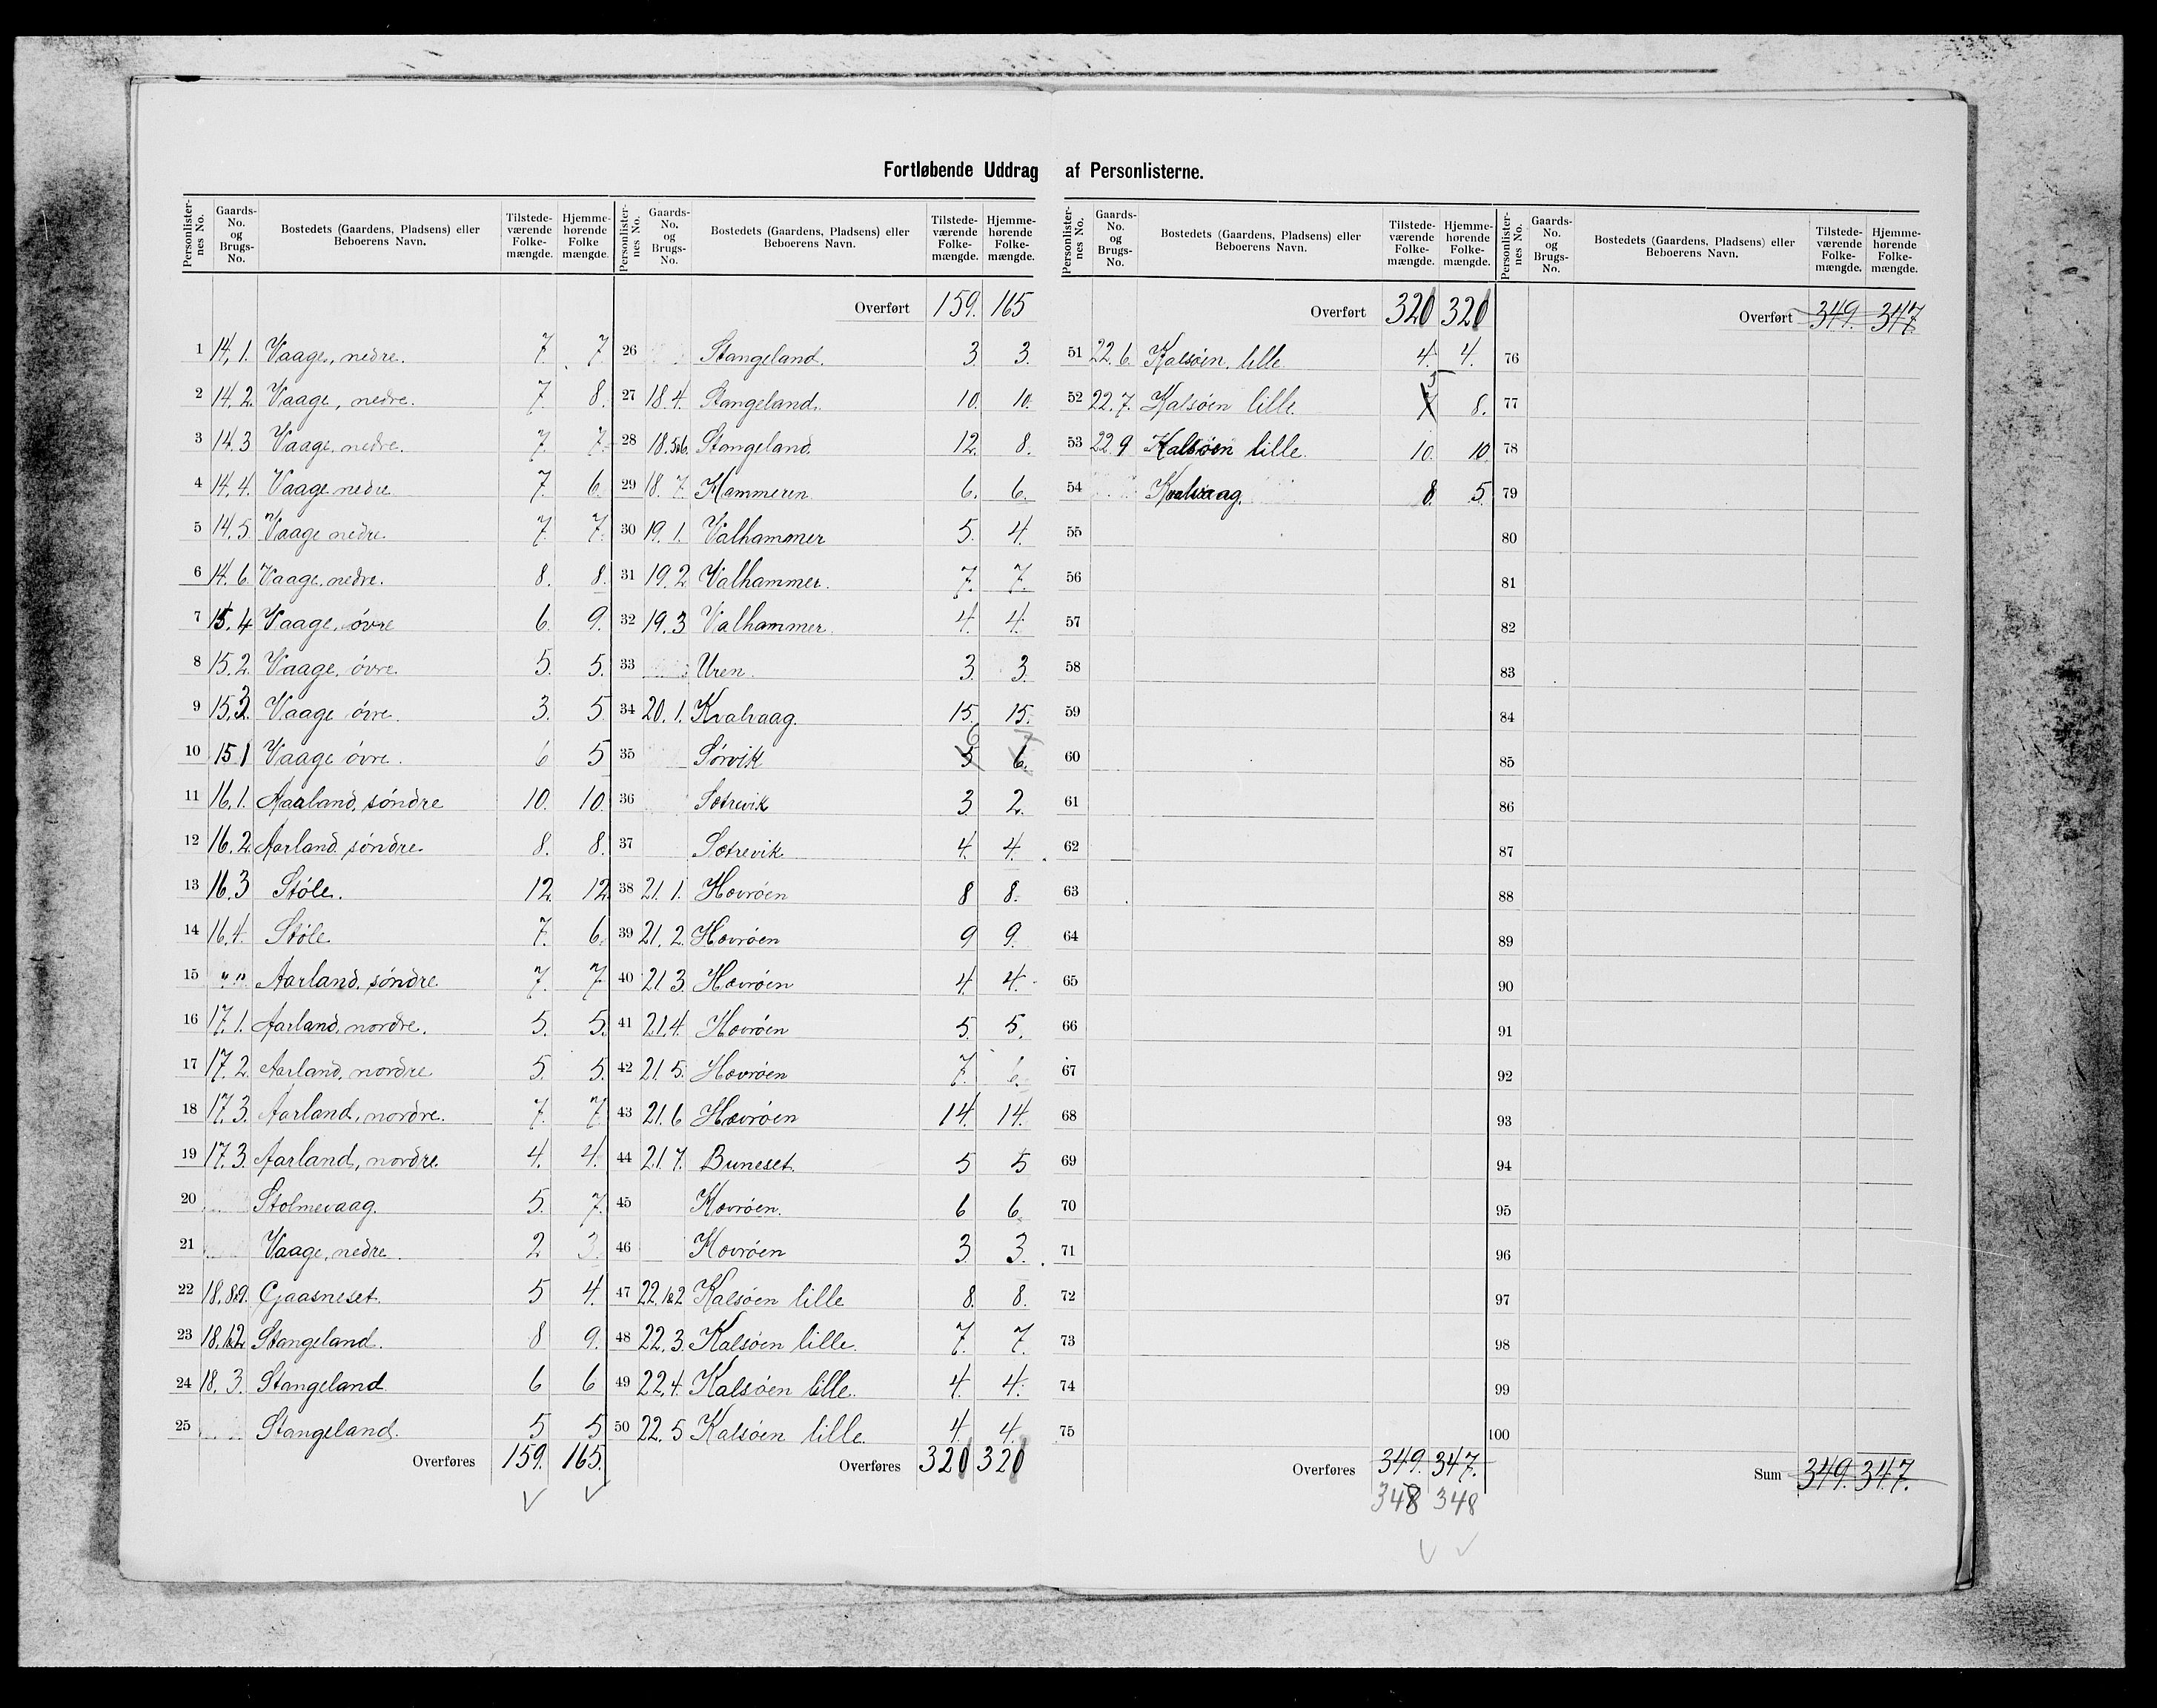 Fortløbende Uddrag af Personlisterne.
Personlister-nes No. Gaards-No. og Brugs-No. Bostedets (Gaardens, Pladsens) eller Beboerens Navn. Tilstede-værende Folke-mængde. Hjemme-hørende Folke mængde.
1 14,1. Vaage, nedre. 7. 7.
2 14.2. Vaage, nedre. 7. 8.
3 14.3 Vaage, nedre. 7. 7.
4 14.4. Vaage nedre 7. 6.
5 14.5. Vaage nedre. 7. 7.
6 14.6. Vaage, nedre. 8. 8.
7 15.4 Vaage, øvre 6. 9.
8 15.2. Vaage, øvre. 5. 5.
9 15.3. Vaage øvre. 3. 5.
10 15 1 Vaage øvre. 6 5
11 16.1. Aarland, søndre 10. 10.
12 16.2. Aarland søndre. 8. 8.
13 16.3 Støle. 12. 12.
14 16.4. Støle. 7. 6.
15 " " Aarland, søndre 7. 7
16 17.1. Aarland, nordre. 5. 5.
17 17.2. Aarland, nordre 5. 5.
18 17.3. Aarland, nordre. 7. 7.
19 17.3. Aarland, nordre. 4. 4.
20 Stolmevaag. 5. 7.
21 Vaage, nedre. 2 3.
22 18.8&9. Gaasneset. 5 4.
23 18.1&2. Stangeland. 8 9.
24 18.3. Stangeland 6 6
25 Stangeland. 5 5
Overføres 159. 165.
Personlister-nes No. Gaards-No. og Brugs-No. Bostedets (Gaardens, Pladsens) eller Beboerens Navn. Tilstede-værende Folke-mængde. Hjemme-hørende Folke-mængde.
Overført 159. 165
26 Stangeland. 3. 3.
27 18.4. Stangeland. 10. 10.
28 18.5&6. Stangeland. 12. 8.
29 18.7. Hammeren 6. 6.
30 19.1. Valhammer 5. 4.
31 19.2 Valhammer. 7. 7.
32 19.3 Valhammer. 4. 4.
33 Uren. 3. 3.
34 20.1. Kvalvaag. 15. 15.
35 Sørvik 5 6 6. 7
36 Sætrevik 3 2.
37 Sætrevik 4. 4.
38 21.1. Hovrøen 8 8.
39 21.2. Hovrøen 9 9.
40 21.3. Hovrøen 4. 4.
41 21.4. Hovrøen 5. 5.
42 21.5. Hovrøen 7. 6.
43 21.6 Hovrøen 14. 14.
44 21.7. Buneset. 5 5
45 Hovrøen. 6 6.
46 Hovrøen 3. 3.
47 22.1&2 Kalsøen lille 8. 8.
48 22.3. Kalsøen lille. 7. 7.
49 22.4. Kalsøen lille. 4. 4.
50 22.5 Kalsøen lille. 4. 4.
Overføres 320 320
Personlister-nes No. Gaards-No. og Brugs-No. Bostedets (Gaardens, Pladsens) eller Beboerens Navn. Tilstede-værende Folke-mængde. Hjemme-hørende Folke-mængde.
Overført 320 320
51 22.6. Kalsøen, lille 4. 4.
52 22.7. Kalsøen lille. 7 5 8.
53 22.9 Kalsøen lille. 10. 10.
54 Kvalvaag. 8. 5.
55
56
57
58
59
60
61
62
63
64
65
66
67
68
69
70
71
72
73
74
75
Overføres 349. 347.
348 348
Personlister-nes No. Gaards-No. og Brugs-No. Bostedets (Gaardens, Pladsens) eller Beboerens Navn. Tilstede-værende Folke-mængde. Hjemme-hørende Folke-mængde.
Overført 349. 347.
76
77
78
79
80
81
82
83
84
85
86
87
88
89
90
91
92
93
94
95
96
97
98
99
100
Sum 349. 347.